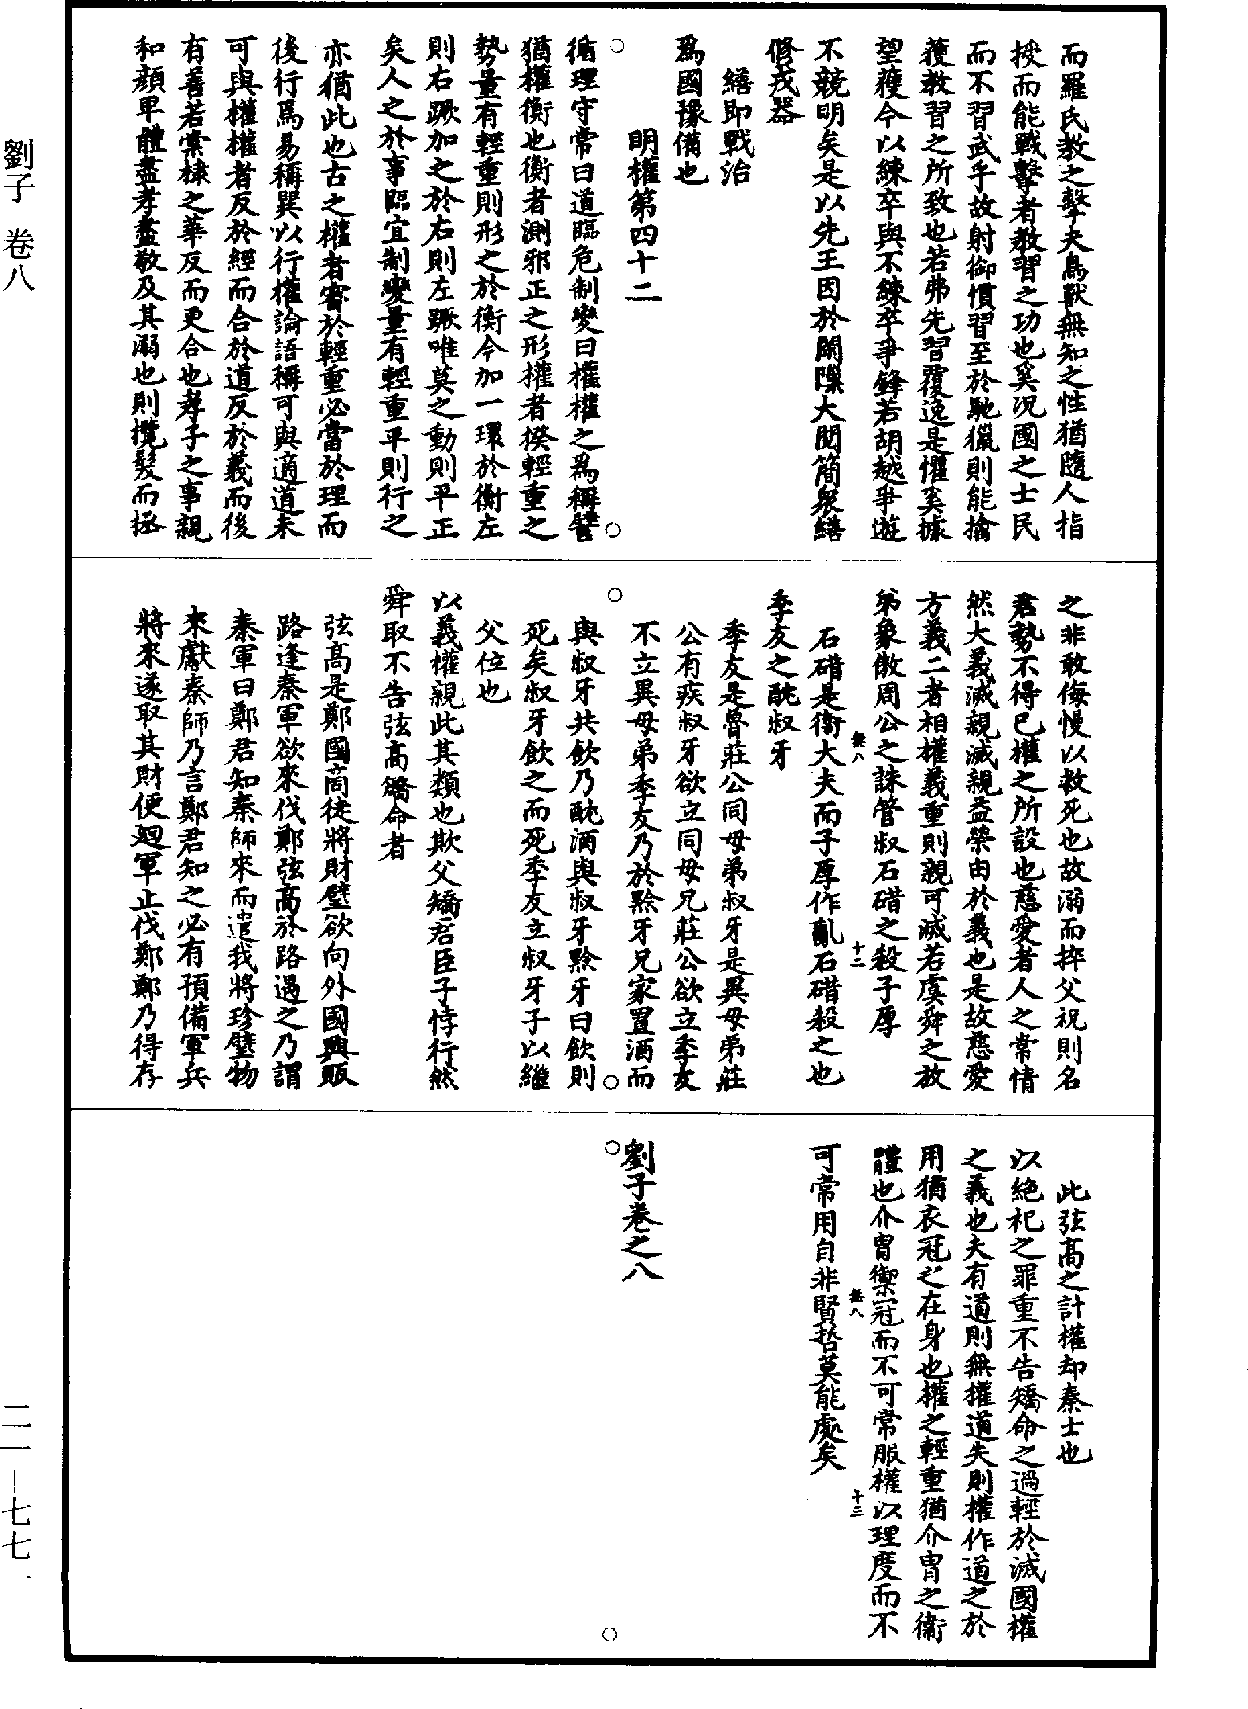 而羅氏教之擊夫鳥獸無知之性猶隨人指
授而能戰擊者教習之功也奚況國之士民
而不習武乎故射御慣習至於馳獵則能擒
獲教習之所致也若弗先習覆逸是懼奚據
望獲今以練卒與不練卒爭鋒若胡越爭遊
不競明矣是以先王因於閑隟大閱簡衆繕
修戎器
繕即戰治
爲國豫備也
明權第四十二
循理守常曰道臨危制變曰權權之爲稱譬
猶權衡也衡者測邪正之形權者揆輕重之
勢量有輕重則形之於衡今加一環於衡左
則右蹶加之於右則左蹶唯莫之動則平正
矣人之於事臨宜制變量有輕重平則行之
亦猶此也古之權者審於輕重必當於理而
後行焉易稱巽以行權論語稱可與適道未
可與權權者反於經而合於道反於義而後
有善若棠棣之華反而更合也孝子之事親
和顔卑體盡孝盡敬及其溺也則攬髮而拯
之非敢侮慢以救死也故溺而捽父祝則名
君勢不得已權之所設也慈愛者人之常情
然大義滅親滅親益榮由於義也是故慈愛
方義二者相權義重則親可滅若虞舜之放
弟象傲周公之誅管叔石碏之殺子厚
石碏是衞大夫而子厚作亂石碏殺之也
季友之酖叔牙
季友是魯莊公同母弟叔牙是異母弟莊
公有疾叔牙欲立同母兄莊公欲立季友
不立異母弟季友乃於黔牙兄家置酒而
與叔牙共飲乃酖酒與叔牙黔牙曰飲則
死矣叔牙飲之而死季友立叔牙子以繼
父位也
以義權親此其類也欺父矯君臣子悖行然
舜取不告弦高矯命者
弦高是鄭國啇徒將財璧欲向外國興販
路逢秦軍欲來伐鄭弦高於路遇之乃謂
秦軍曰鄭君知秦師來而遣我將珍璧物
來獻秦師乃言鄭君知之必有預備軍兵
將來遂取其財便廻軍止伐鄭鄭乃得存
此弦高之計權却秦士也
以絶祀之罪重不告矯命之過輕於滅國權
之義也夫有道則無權道失則權作道之於
用猶衣冠之在身也權之輕重猶介胄之衞
體也介胄禦冦而不可常服權以理度而不
可常用自非賢哲莫能處矣
劉子卷之八
劉子 卷八
二一—七七
卷八
十二
卷八
十三